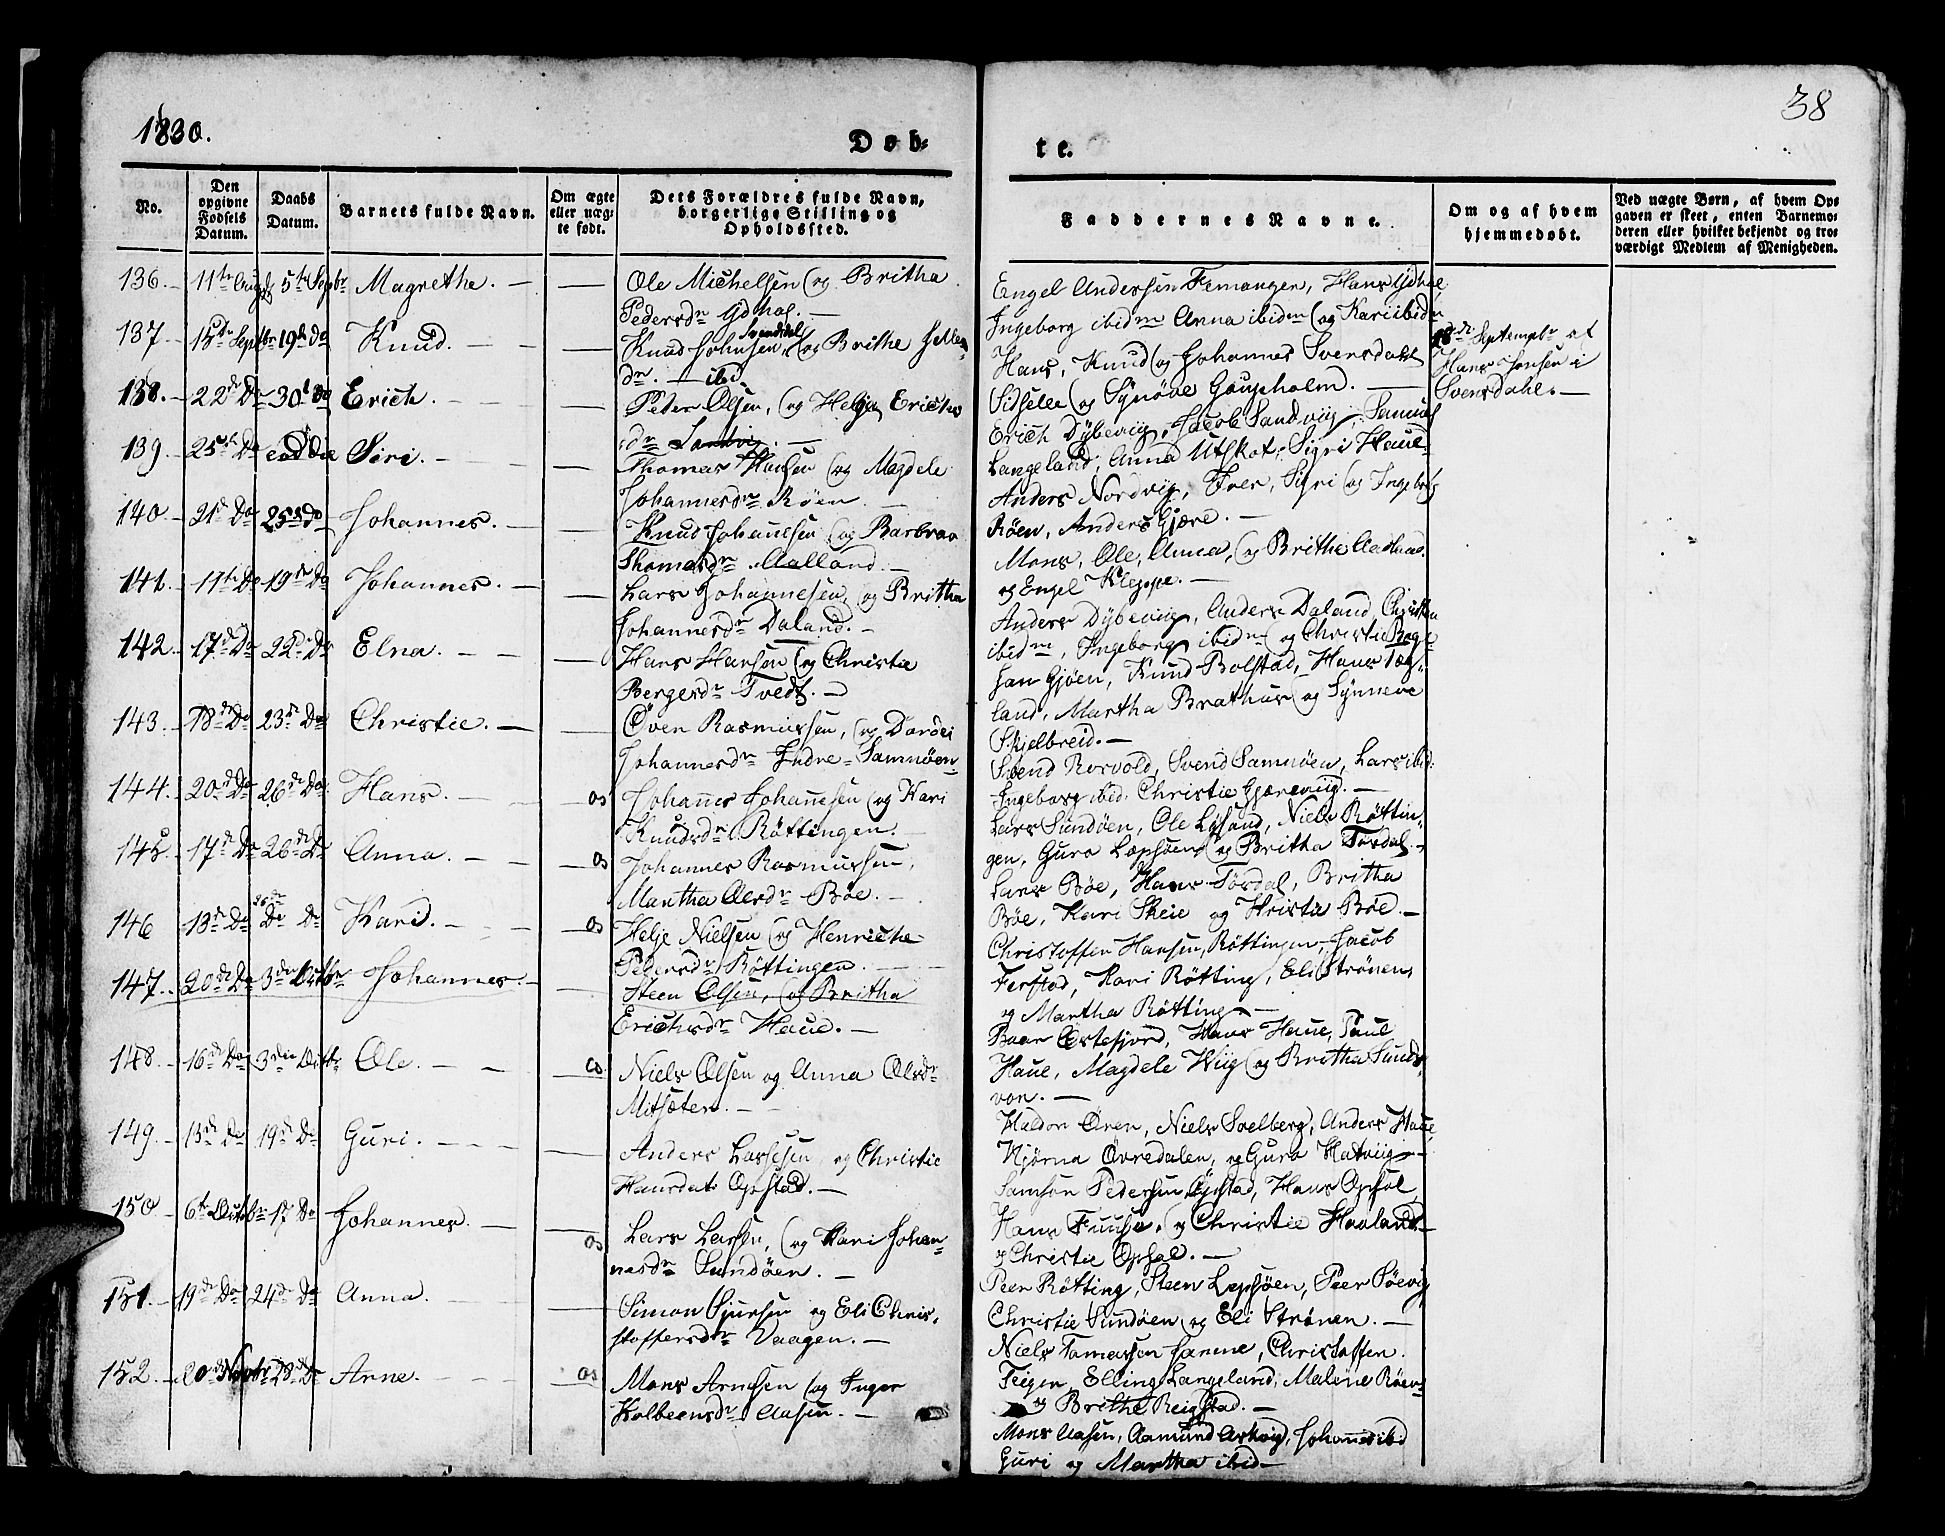 1830.
38
Døb-
te.
No.
Den opgivne Fødsels Datum.
Daabs Datum.
Barnets fulde Navn.
Om ægte eller uægte født.
Dets Forældres fulde Navn, borgerlige Stilling og Opholdssted.
Faddernes Navne.
Om og af hvem hjemmedøbt.
Ved uægte Børn, af hvem Opgaven er skeet, enten Barnemoderen eller hvilket bekjendt og troværdigt Medlem af Menigheden.
136. 11te Aug 5te Septbr Magrethe. Ole Michelsen og Britha
Pedersdr
Engel Andersen Femangen, Hans
Ingeborg ibidm Anna ibidm og Kari ibidm
137. 15de Septbr 19de Do Knud. Knud Johnsen Svendsdal og Brithe
dr. ibd.
Hans, Knud og Johannes Svensdal
Sidselle og Synøve Goupholm.
18de Septembr af
Hans Jensen i
Svensdahl.
138. 22de Do 30te Do Erich. Peter Olsen, og Helga Erichs
dr Sandvig.
Erich Dybevig, Jacob Sandviig, Samuel
Langeland, Anna Utskot, Sigri Haue
139. 25de Do eod Die Siri. Thomas Hansen og Magdele
Johannesdr Røen
Anders Nordvig, Iver, Sigri og Ingeborg
Røen, Anders Gjære.
140. 21de Do 25de Do Johannes. Knud Johannesen og Barbroe
Thomasdr Aalland.
Mons, Ole, Anna, og Brithe Aalland
og Engel Kleppe.
141. 17de Do 19de Do Johannes. Lars Johannesen, og Britha
Johannesdr Daland.
Anders Dybevig, Anders Daland, Christen
ibidm, Ingeborg ibidm og Christi Boge
142. 17de Do 22de Do Elna. Hans Hansen og Christie
Bergesdr Tvedt.
Jan Gjøen, Knud Bolstad, Hans
land, Martha Brathus og Synneve
Skjelbreid.
143. 18de Do 23de Do Christie. Öven Rasmussen, og Dordei
Johannesdr Indre-Samnøen
Svend Rorvold, Svend Samnøen, Lars ibid.
Ingeborg ibid. Christie Gjæreviig.
144. 20de Do 26de Do Hans. Os Johannes Johannesen og Kari
Knudsdr Røttingen.
Lars Sundøen, Ole Lysand, Niels Røttin-
gen, Guro Lepsøen og Britha Tørdal.
145. 17de Do 26de Do Anna. Os Johannes Rasmussen,
Martha Olsdr Bøe.
Lars Bøe, Hans Tørdal, Britha
Bøe, Kari Skeie og Kristi Bøe.
146 13de Do 26de Do Kari. Os Helje Nielsen og Henriche
Pedersdr Røttingen.
Christoffen Hansen, Røttingen, Jacob
Ferstad, Kari Røtting, Eli Strønen,
og Martha Røtting
147. 20de Do 3die Octbr Johannes. Steen Olsen, og Britha
Erichsdr Haue.
Baar Østefjord, Hans Haue, Paul
Haue, Magdele Wiig og Britha Sunds-
von.
148. 16de Do 3die Octbr Ole. Os Niels Olsen og Anna Olsdr
Mitsæter.
Haldor Øren, Niels Soelberg, Anders Haue
Njørna Øvredalen, og Guro Hatviig
149. 13de Do 19de Do Guri. Anders Lassesen og Christie
Hansdat Opstad.
Samson Pedersen Opstad, Hans Opsal
Hans Fuusa, og Christie Haaland
og Christie Opsal.
150. 6te Octbr 17 Do Johannes. Os Lars Larsen, og Kari Johan-
nesdr Sundøen.
Peer Røtting, Steen Lepsøen, Peer Søevig
Christie Sundøen og Eli Strønen.
151. 19de Do 24de Do Anna. Simon Sjursen og Eli Chris-
stoffersdr Vaagen.
Niels Tomassen, Christoffen
Teigen, Elling Langeland, Malene Røen
og Brithe Reigstad.
152. 20de 28de Do Arne. Os Mons Arnesen og Inger
Kolbeensdr Aasen.
Mons Aasen, Aamund Askvig, Johannes ibd
Guri og Martha ibid